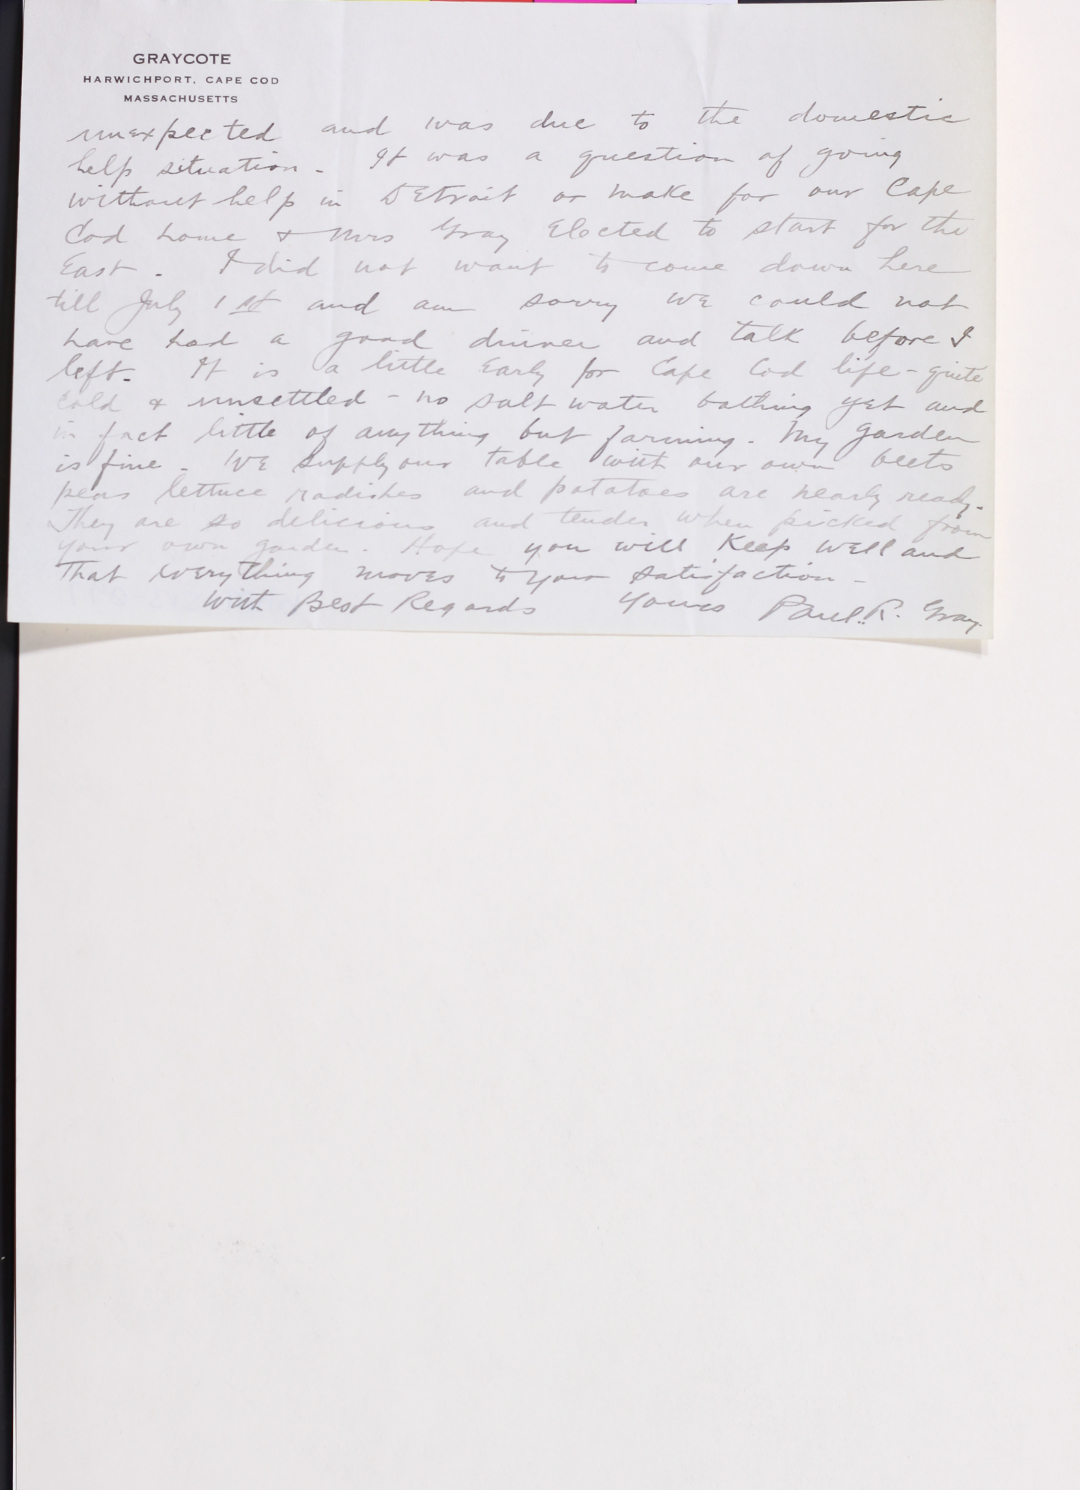 GRAYCOTE
HARWICHPORT, CAPE COD
MASSACHUSETTS
unexpected and was due to the domestic
help situation - It was a question of going
without help in Detroit or make for our Cape
Cod home & Mrs Gray Elected to start for the
East - I did not want to come down here
till July 1st and am sorry we could not
have had a good dinner and talk before I
left - It is a little Early for Cape Cod life - quite
cold & unsettled - no salt water bathing yet and
in fact little of anything but farming - My garden
is fine - We supply our table with our own beets
peas lettuce radishes and potatoes are nearly ready -
They are so delicious and tender when picked from
your own garden - Hope you will Keep well and
That Everything moves to your satisfaction -
With Best Regards Yours Paul R. Gray